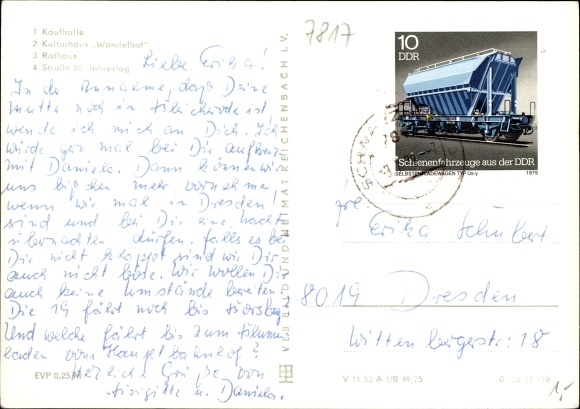 1 Kaufhalle
2 Kulturhaus „Wandelhof"
3 Rathaus
4 Straße 20. Jahrestag
Liebe Erika!
In der Annahme, daß Deine
Mutti noch in ist
wende ich mich an Dich. Ich
würde gern mal bei Dir aufkreuzen
mit Daniela. Dann können wir
uns bißchen mehr vornehmen
wenn wir mal in Dresden
sind und bei Dir eine Nacht
übernachten dürfen. Falls es bei
Dir nicht klappt sind wir Dir
auch nicht böse. Wir wollen Dir
auch keine Umstände bereiten.
Die 19 fährt noch bis
Und welche fährt bis zum
vom Hauptbahnhof?
Herzliche Grüße von
Birgitte u. Daniela.
EVP 0,25 M
VEB BILD UND HEIMAT REICHENBACH I. V.
7817
10
DDR
Schienenfahrzeuge aus der DDR
SELBSTENTLADEWAGEN TYP Us-y
1979
Erika Schubert
8019 Dresden
Wittenbergerstr. 18
V 11 50 A 1/B 49/75
1,-